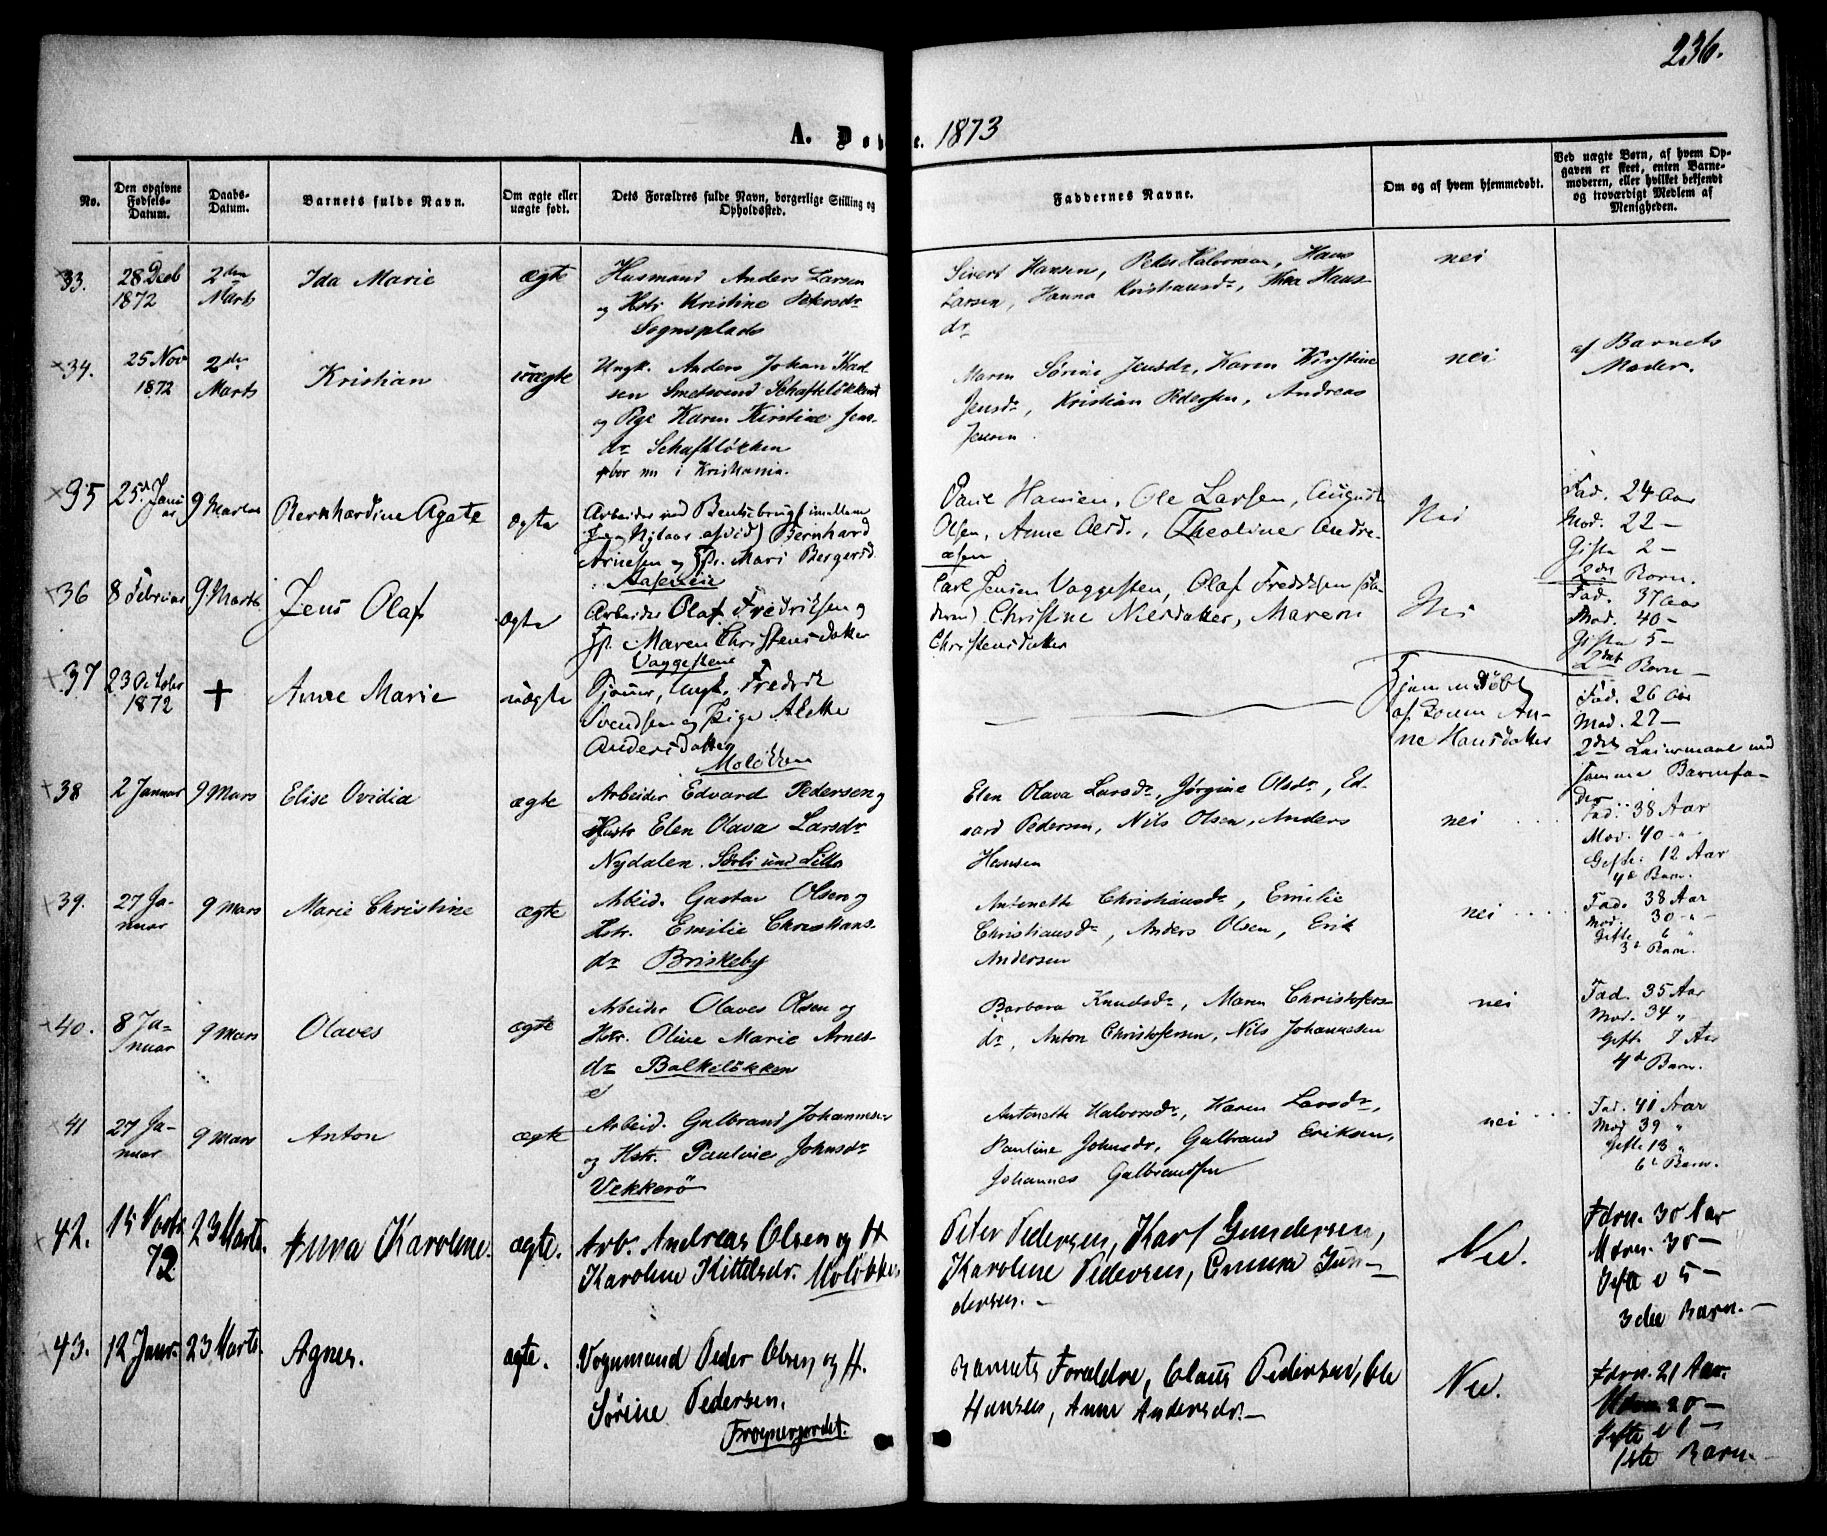 236.
A. Døbte. 1873
No.
Den opgivne Fødsels-Datum.
Daabs-Datum.
Barnets fulde Navn.
Om ægte eller uægte født.
Dets Forældres fulde Navn, borgerlige Stilling og Opholdssted.
Faddernes Navne.
Om og af hvem hjemmedøbt.
Ved uægte Børn, af hvem Opgaven er skeet, enten Barnemoderen, eller hvilket bekjendt og troværdigt Medlem af Menigheden.
33.
28 Decb
1872
2den
Marts
Ida Marie
ægte
Husmand Anders Larsen
og Hstr Kristine Petersdr
Sognsplads
Sivert Hansen, Peder Halvorsen, Hans
Larsen, Hanna Kristiansdr, Hans-
dr
nei
34.
25 Nov
1872
2den
Marts
Kristian
uægte
Ungk. Anders Johan Karl
sen Smedsvend Schafteløkken
og Pige Karen Kirstine Jens-
dr Schafteløkken
bor nu i Kristiania.
Maren Sørine Jensdr, Karen Kirstine
Jensdr, Kristian Pedersen, Andreas
Jensen
nei
af Barnets
Moder.
35
25d Janu
ar
9 Marts
Bernhardine Agate
ægte
Arbeider ved Bentsebrug imellem
Bernhard
Arnesen og Hstr. Mari Bergersd.
Hansen, Ole Larsen, August
Olsen, Anne Olsd., Theoline Andre-
æsen
Nei
Fad. 24 Aar
Mod. 22 —
Gifte 2 —
2det Barn.
36
8 Februar
9 Marts
Jens Olaf
ægte
Arbeider Olaf Fredriksen og
H. Maren Christensdatter
Vaggesteen
Carl Jensen Vaggesten, Olaf Fredriksen
Christine Nilsdatter, Maren
Christensdatter
Nei
Fad. 37 Aar
Mod. 40 —
Gifte 5 —
2det Barn
37
23 October
1872
✝
Anne Marie
uægte
Ungk. Fredrik
Svendsen og Pige Alette
Andersdatter
Moløkken
Hjemmedøbt
af Anne
Hansdatter
Fad. 26 Aar
Mod. 27 —
2det Leiermaal med
samme Barnefa-
der
38
2 Januar
9 Mars
Elise Ovidia
ægte
Arbeider Edvard Pedersen og
Hustr Elen Olava Larsdr
Nydalen. Sørli und Lillo
Elen Olava Larsdr, Jørgine Olsdr, Ed-
vard Pedersen, Nils Olsen, Anders
Hansen
nei
Fad: 38 Aar
Mod. 40 "
Gifte: 12 Aar
4d Barn.
39.
27 Ja-
nuar
9 Mars
Marie Christine
ægte
Arbeid. Gustav Olsen og
Hstr. Emilie Christians-
dr Briskeby
Antonette Christiansdr, Emilie
Christiansdr, Anders Olsen, Erik
Andersen
nei
Fad: 38 Aar
Mod. 30 "
Gifte 6 "
3d Barn.
40.
8 Ja-
nuar
9 Mars
Olaves
ægte
Arbeider Olaves Olsen og
Hstr. Oline Marie Arnes-
dr Balkeløkken
Barbara Knudsdr, Maren Christofers
dr, Anton Christofersen, Nils Johannesen
nei
Fad. 35 Aar
Mod. 34 "
Gifte 7 Aar
4d Barn.
41
27 Ja-
nuar
9 Mars
Anton
ægte
Arbeid. Gulbrand Johannesen
og Hstr. Pauline Johnsdr
Vekkerø
Antonette Halvorsdr, Karen Larsdr,
Pauline Johnsdr, Gulbrand Eriksen,
Johannes Gulbrandsen
nei
Fad. 41 Aar
Mod 39 "
Gifte 13 "
6t Barn.
42.
15 Novbr
72
23 Marts.
Anna Karoline.
ægte.
Arb. Andreas Olsen og H
Karoline Kittelsdr. Moløkken
Peter Pedersen, Karl Gundersen,
Karoline Pedersen, Emma Gun-
dersen. —
Nei.
Fdrn. 30 Aar
Mdrn. 30 —
Gifte i 5 —
3die Barn. —
43.
12 Janr.
23 Marts.
Agnes.
ægte.
Vognmand Peder Olsen og H.
Sørine Pedersen.
Frognergordet.
Barnets Forældre, Claus Pedersen, Ole
Hansen, Anne Andersdr. —
Nei.
Fdrn. 21 Aar.
Mdrn. 20 —
Gifte i 1 —
1ste Barn —